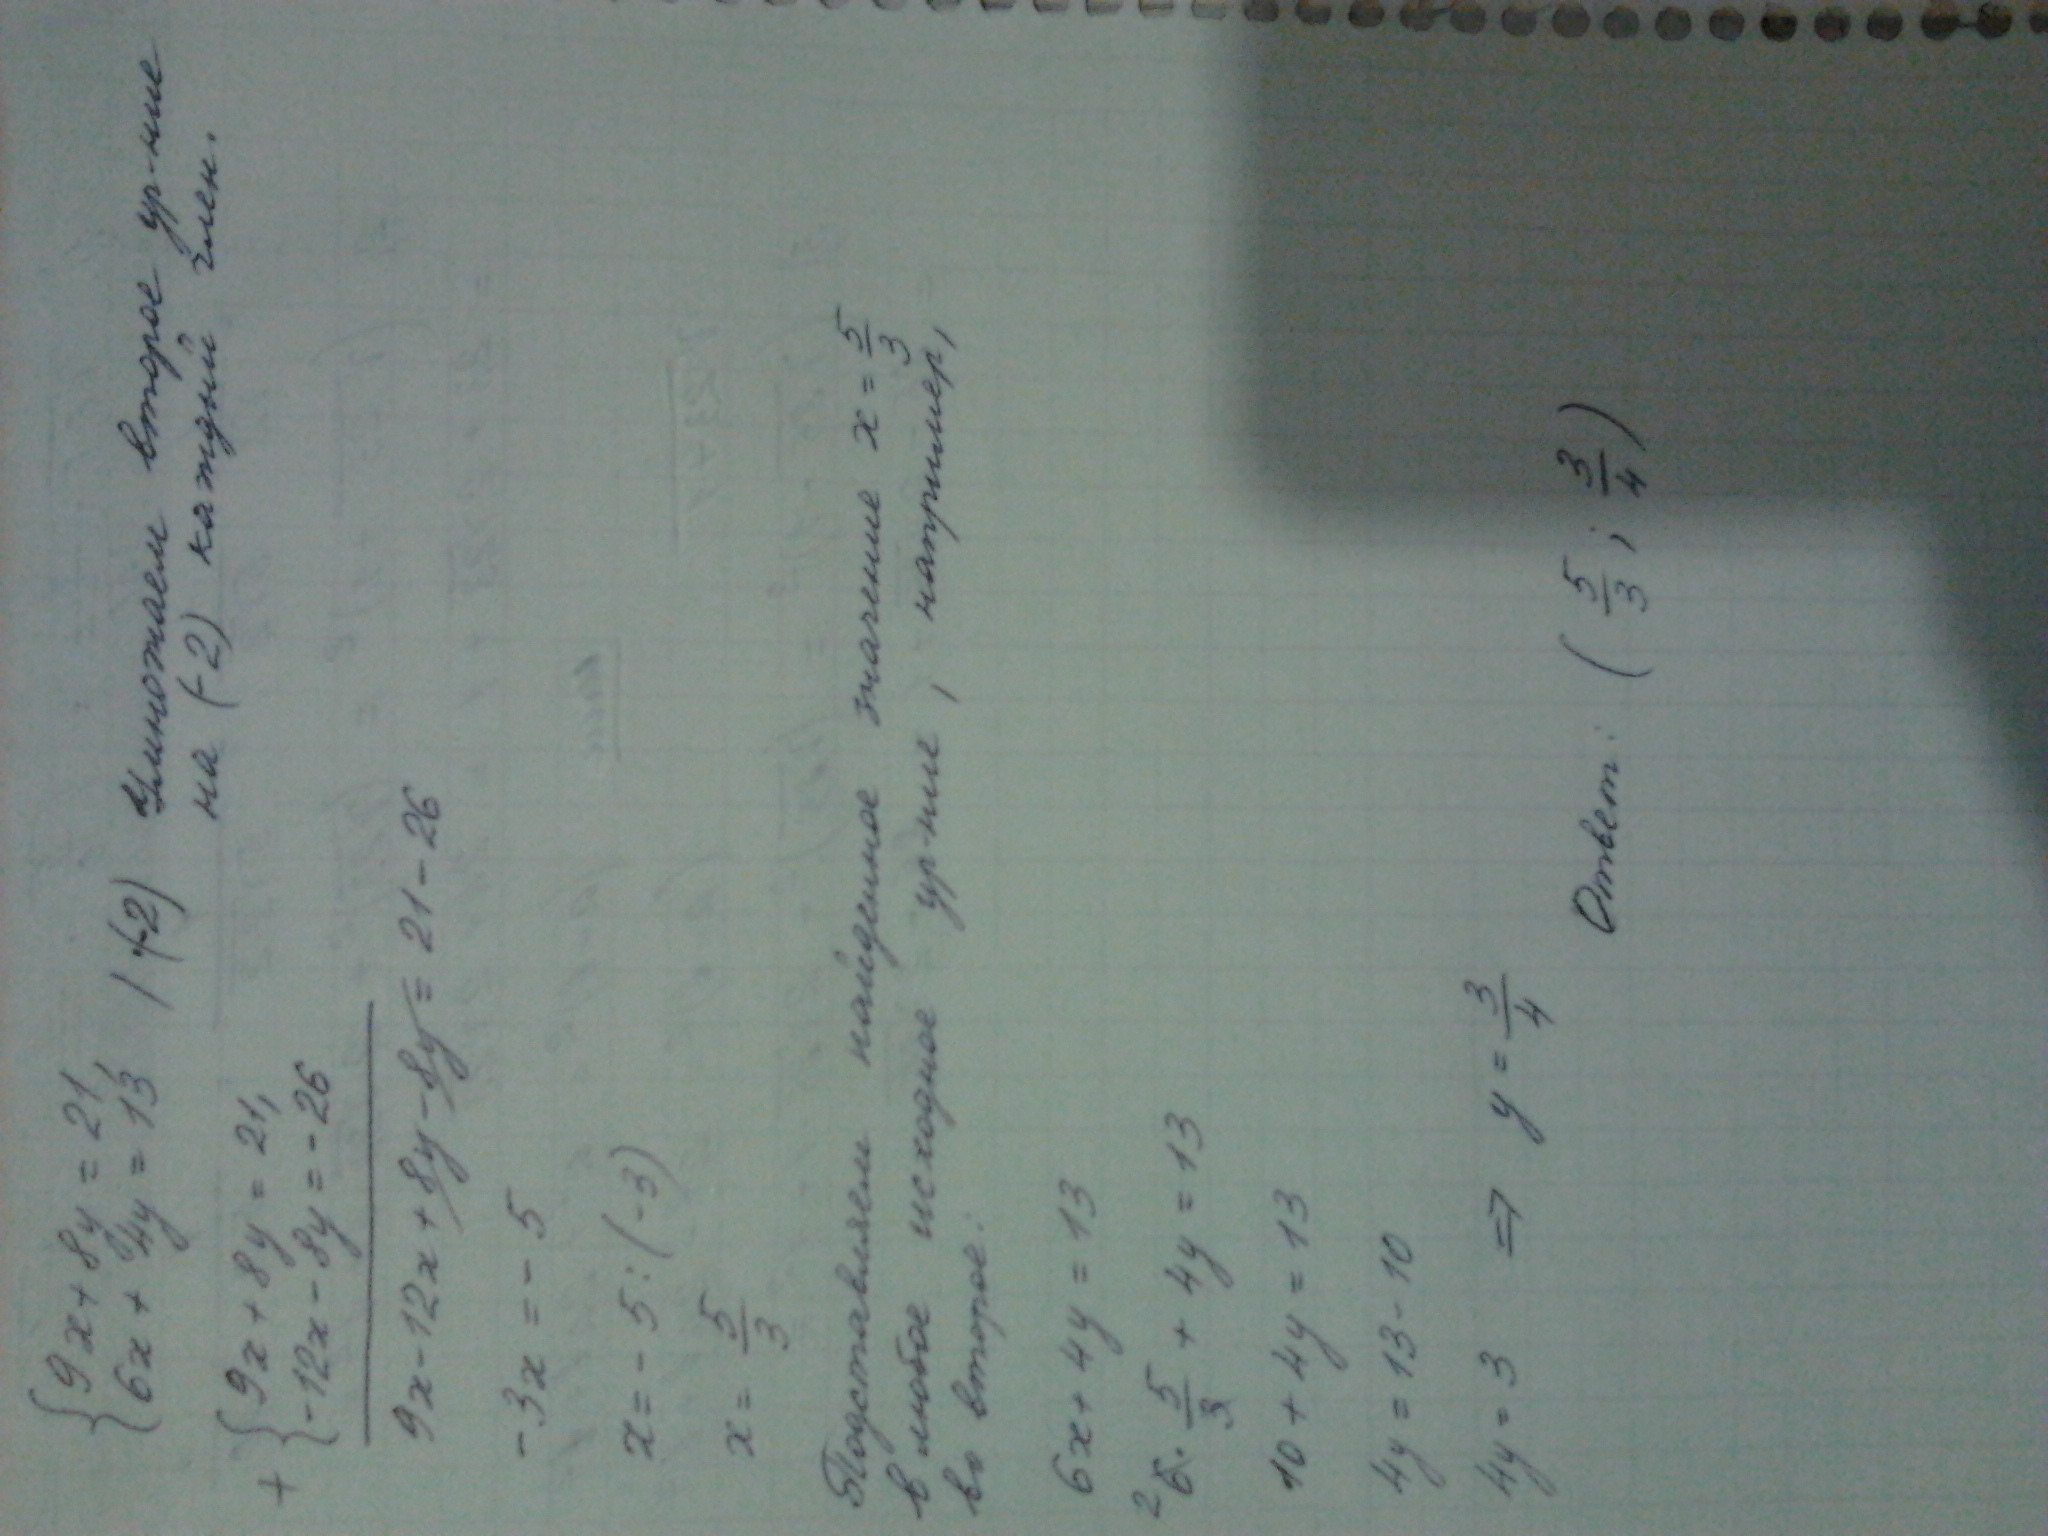 {9x + 8y = 21,
{6x + 4y = 13, | ·(-2) Умножаем второе ур-ние
на (-2) каждый член.
+ {9x + 8y = 21,
{-12x - 8y = -26
9x - 12x + 8y - 8y = 21 - 26
-3x = -5
x = -5 : (-3)
x = 5/3
Подставляем найденное значение x = 5/3
в любое исходное ур-ние, например,
во второе:
6x + 4y = 13
²6 · 5/3 + 4y = 13
10 + 4y = 13
4y = 13 - 10
4y = 3 ⇒ y = 3/4
Ответ: (5/3 ; 3/4)